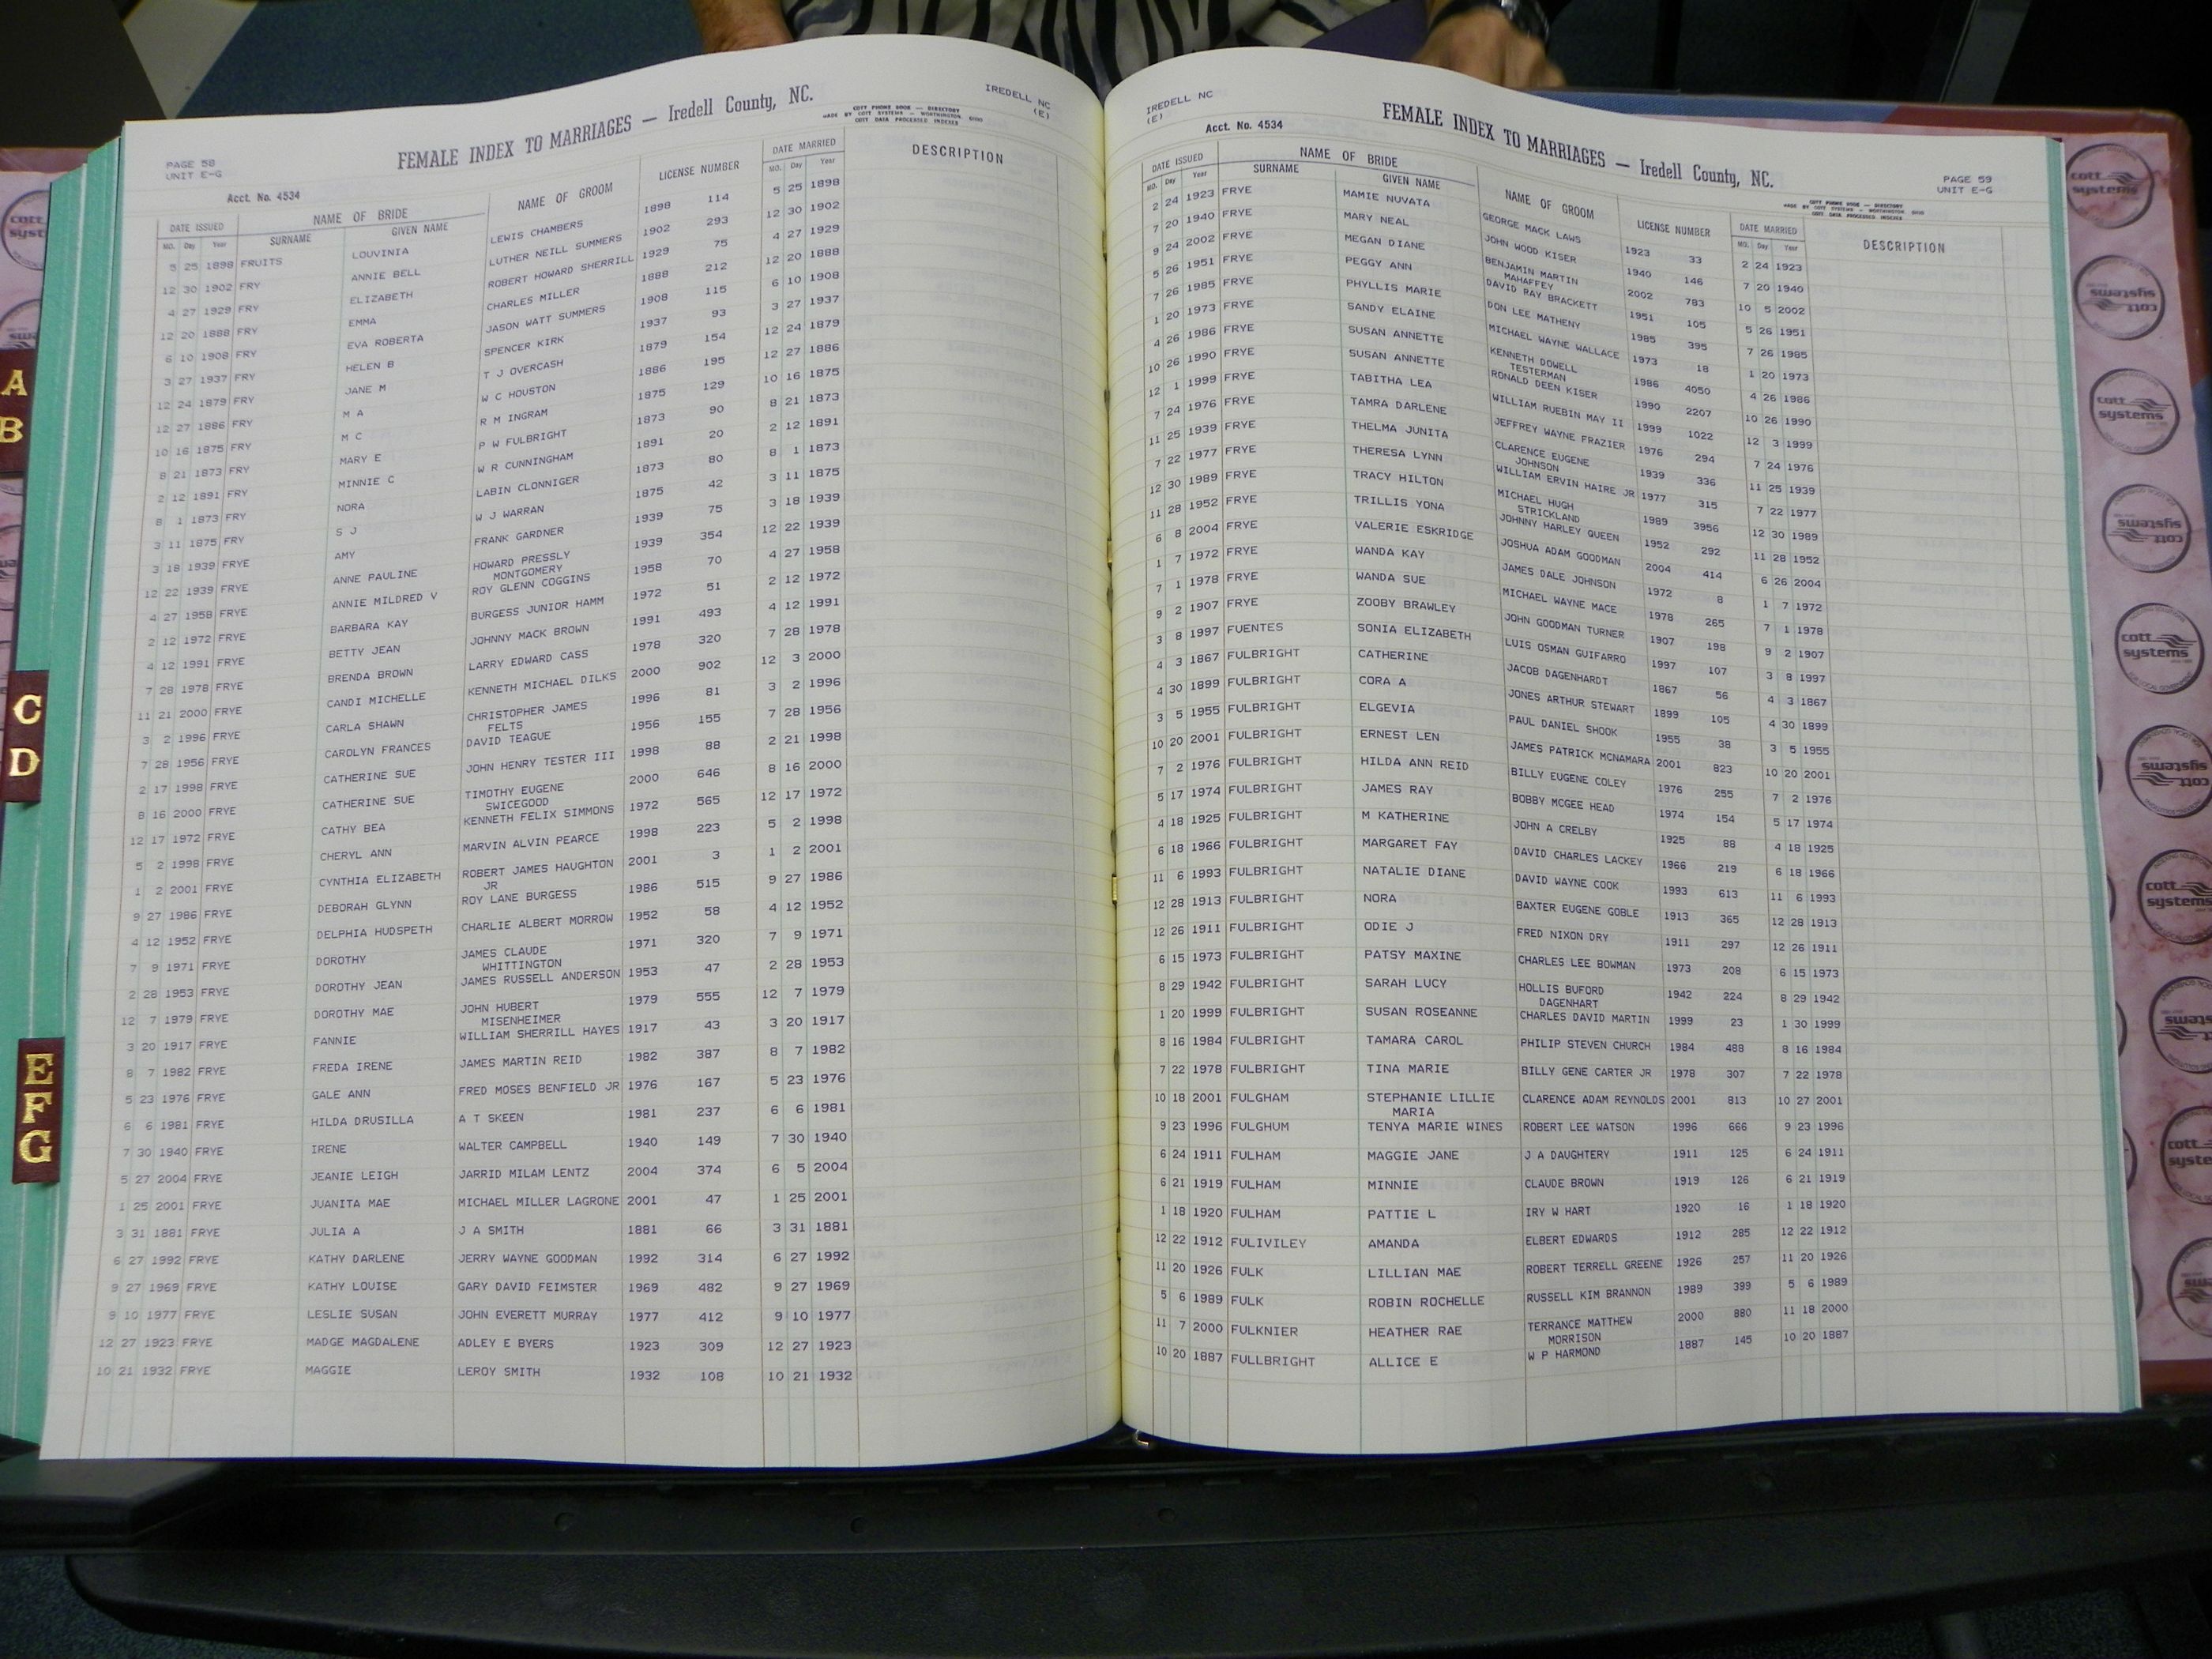 PAGE 58
UNIT E-G
Acct. No. 4534
FEMALE INDEX TO MARRIAGES — Iredell County, NC.
COTT PHONE BOOK — DIRECTORY
MADE BY COTT SYSTEMS — WORTHINGTON, OHIO
COTT DATA PROCESSED INDEXES
IREDELL NC
(E)
DATE ISSUED NAME OF BRIDE NAME OF GROOM LICENSE NUMBER DATE MARRIED DESCRIPTION
MO. Day Year SURNAME GIVEN NAME MO. Day Year
5 25 1898 FRUITS LOUVINIA LEWIS CHAMBERS 1898 114 5 25 1898
12 30 1902 FRY ANNIE BELL LUTHER NEILL SUMMERS 1902 293 12 30 1902
4 27 1929 FRY ELIZABETH ROBERT HOWARD SHERRILL 1929 75 4 27 1929
12 20 1888 FRY EMMA CHARLES MILLER 1888 212 12 20 1888
6 10 1908 FRY EVA ROBERTA JASON WATT SUMMERS 1908 115 6 10 1908
3 27 1937 FRY HELEN B SPENCER KIRK 1937 93 3 27 1937
12 24 1879 FRY JANE M T J OVERCASH 1879 154 12 24 1879
12 27 1886 FRY M A W C HOUSTON 1886 195 12 27 1886
10 16 1875 FRY M C R M INGRAM 1875 129 10 16 1875
8 21 1873 FRY MARY E P W FULBRIGHT 1873 90 8 21 1873
2 12 1891 FRY MINNIE C W R CUNNINGHAM 1891 20 2 12 1891
8 1 1873 FRY NORA LABIN CLONNIGER 1873 80 8 1 1873
3 11 1875 FRY S J W J WARRAN 1875 42 3 11 1875
3 18 1939 FRYE AMY FRANK GARDNER 1939 75 3 18 1939
12 22 1939 FRYE ANNE PAULINE HOWARD PRESSLY 1939 354 12 22 1939
MONTGOMERY
4 27 1958 FRYE ANNIE MILDRED V ROY GLENN COGGINS 1958 70 4 27 1958
2 12 1972 FRYE BARBARA KAY BURGESS JUNIOR HAMM 1972 51 2 12 1972
4 12 1991 FRYE BETTY JEAN JOHNNY MACK BROWN 1991 493 4 12 1991
7 28 1978 FRYE BRENDA BROWN LARRY EDWARD CASS 1978 320 7 28 1978
11 21 2000 FRYE CANDI MICHELLE KENNETH MICHAEL DILKS 2000 902 12 3 2000
3 2 1996 FRYE CARLA SHAWN CHRISTOPHER JAMES 1996 81 3 2 1996
FELTS
7 28 1956 FRYE CAROLYN FRANCES DAVID TEAGUE 1956 155 7 28 1956
2 17 1998 FRYE CATHERINE SUE JOHN HENRY TESTER III 1998 88 2 21 1998
8 16 2000 FRYE CATHERINE SUE TIMOTHY EUGENE 2000 646 8 16 2000
SWICEGOOD
12 17 1972 FRYE CATHY BEA KENNETH FELIX SIMMONS 1972 565 12 17 1972
5 2 1998 FRYE CHERYL ANN MARVIN ALVIN PEARCE 1998 223 5 2 1998
1 2 2001 FRYE CYNTHIA ELIZABETH ROBERT JAMES HAUGHTON 2001 3 1 2 2001
JR
9 27 1986 FRYE DEBORAH GLYNN ROY LANE BURGESS 1986 515 9 27 1986
4 12 1952 FRYE DELPHIA HUDSPETH CHARLIE ALBERT MORROW 1952 58 4 12 1952
7 9 1971 FRYE DOROTHY JAMES CLAUDE 1971 320 7 9 1971
WHITTINGTON
2 28 1953 FRYE DOROTHY JEAN JAMES RUSSELL ANDERSON 1953 47 2 28 1953
12 7 1979 FRYE DOROTHY MAE JOHN HUBERT 1979 555 12 7 1979
MISENHEIMER
3 20 1917 FRYE FANNIE WILLIAM SHERRILL HAYES 1917 43 3 20 1917
8 7 1982 FRYE FREDA IRENE JAMES MARTIN REID 1982 387 8 7 1982
5 23 1976 FRYE GALE ANN FRED MOSES BENFIELD JR 1976 167 5 23 1976
6 6 1981 FRYE HILDA DRUSILLA A T SKEEN 1981 237 6 6 1981
7 30 1940 FRYE IRENE WALTER CAMPBELL 1940 149 7 30 1940
5 27 2004 FRYE JEANIE LEIGH JARRID MILAM LENTZ 2004 374 6 5 2004
1 25 2001 FRYE JUANITA MAE MICHAEL MILLER LAGRONE 2001 47 1 25 2001
3 31 1881 FRYE JULIA A J A SMITH 1881 66 3 31 1881
6 27 1992 FRYE KATHY DARLENE JERRY WAYNE GOODMAN 1992 314 6 27 1992
9 27 1969 FRYE KATHY LOUISE GARY DAVID FEIMSTER 1969 482 9 27 1969
9 10 1977 FRYE LESLIE SUSAN JOHN EVERETT MURRAY 1977 412 9 10 1977
12 27 1923 FRYE MADGE MAGDALENE ADLEY E BYERS 1923 309 12 27 1923
10 21 1932 FRYE MAGGIE LEROY SMITH 1932 108 10 21 1932
IREDELL NC
(E)
Acct. No. 4534
FEMALE INDEX TO MARRIAGES — Iredell County, NC.
PAGE 59
UNIT E-G
DATE ISSUED NAME OF BRIDE NAME OF GROOM LICENSE NUMBER DATE MARRIED DESCRIPTION
MO. Day Year SURNAME GIVEN NAME MO. Day Year
2 24 1923 FRYE MAMIE NUVATA GEORGE MACK LAWS 1923 33 2 24 1923
7 20 1940 FRYE MARY NEAL JOHN WOOD KISER 1940 146 7 20 1940
9 24 2002 FRYE MEGAN DIANE BENJAMIN MARTIN 2002 783 10 5 2002
MAHAFFEY
5 26 1951 FRYE PEGGY ANN DAVID RAY BRACKETT 1951 105 5 26 1951
7 26 1985 FRYE PHYLLIS MARIE DON LEE MATHENY 1985 395 7 26 1985
1 20 1973 FRYE SANDY ELAINE MICHAEL WAYNE WALLACE 1973 18 1 20 1973
4 26 1986 FRYE SUSAN ANNETTE KENNETH DOWELL 1986 4050 4 26 1986
TESTERMAN
10 26 1990 FRYE SUSAN ANNETTE RONALD DEEN KISER 1990 2207 10 26 1990
12 1 1999 FRYE TABITHA LEA WILLIAM RUEBIN MAY II 1999 1022 12 3 1999
7 24 1976 FRYE TAMRA DARLENE JEFFREY WAYNE FRAZIER 1976 294 7 24 1976
11 25 1939 FRYE THELMA JUNITA CLARENCE EUGENE 1939 336 11 25 1939
JOHNSON
7 22 1977 FRYE THERESA LYNN WILLIAM ERVIN HAIRE JR 1977 315 7 22 1977
12 30 1989 FRYE TRACY HILTON MICHAEL HUGH 1989 3956 12 30 1989
STRICKLAND
11 28 1952 FRYE TRILLIS YONA JOHNNY HARLEY QUEEN 1952 292 11 28 1952
6 8 2004 FRYE VALERIE ESKRIDGE JOSHUA ADAM GOODMAN 2004 414 6 26 2004
1 7 1972 FRYE WANDA KAY JAMES DALE JOHNSON 1972 8 1 7 1972
7 1 1978 FRYE WANDA SUE MICHAEL WAYNE MACE 1978 265 7 1 1978
9 2 1907 FRYE ZOOBY BRAWLEY JOHN GOODMAN TURNER 1907 198 9 2 1907
3 8 1997 FUENTES SONIA ELIZABETH LUIS OSMAN GUIFARRO 1997 107 3 8 1997
4 3 1867 FULBRIGHT CATHERINE JACOB DAGENHARDT 1867 56 4 3 1867
4 30 1899 FULBRIGHT CORA A JONES ARTHUR STEWART 1899 105 4 30 1899
3 5 1955 FULBRIGHT ELGEVIA PAUL DANIEL SHOOK 1955 38 3 5 1955
10 20 2001 FULBRIGHT ERNEST LEN JAMES PATRICK MCNAMARA 2001 823 10 20 2001
7 2 1976 FULBRIGHT HILDA ANN REID BILLY EUGENE COLEY 1976 255 7 2 1976
5 17 1974 FULBRIGHT JAMES RAY BOBBY MCGEE HEAD 1974 154 5 17 1974
4 18 1925 FULBRIGHT M KATHERINE JOHN A CRELBY 1925 88 4 18 1925
6 18 1966 FULBRIGHT MARGARET FAY DAVID CHARLES LACKEY 1966 219 6 18 1966
11 6 1993 FULBRIGHT NATALIE DIANE DAVID WAYNE COOK 1993 613 11 6 1993
12 28 1913 FULBRIGHT NORA BAXTER EUGENE GOBLE 1913 365 12 28 1913
12 26 1911 FULBRIGHT ODIE J FRED NIXON DRY 1911 297 12 26 1911
6 15 1973 FULBRIGHT PATSY MAXINE CHARLES LEE BOWMAN 1973 208 6 15 1973
8 29 1942 FULBRIGHT SARAH LUCY HOLLIS BUFORD 1942 224 8 29 1942
DAGENHART
1 20 1999 FULBRIGHT SUSAN ROSEANNE CHARLES DAVID MARTIN 1999 23 1 30 1999
8 16 1984 FULBRIGHT TAMARA CAROL PHILIP STEVEN CHURCH 1984 488 8 16 1984
7 22 1978 FULBRIGHT TINA MARIE BILLY GENE CARTER JR 1978 307 7 22 1978
10 18 2001 FULGHAM STEPHANIE LILLIE CLARENCE ADAM REYNOLDS 2001 813 10 27 2001
MARIA
9 23 1996 FULGHUM TENYA MARIE WINES ROBERT LEE WATSON 1996 666 9 23 1996
6 24 1911 FULHAM MAGGIE JANE J A DAUGHTERY 1911 125 6 24 1911
6 21 1919 FULHAM MINNIE CLAUDE BROWN 1919 126 6 21 1919
1 18 1920 FULHAM PATTIE L IRY W HART 1920 16 1 18 1920
12 22 1912 FULIVILEY AMANDA ELBERT EDWARDS 1912 285 12 22 1912
11 20 1926 FULK LILLIAN MAE ROBERT TERRELL GREENE 1926 257 11 20 1926
5 6 1989 FULK ROBIN ROCHELLE RUSSELL KIM BRANNON 1989 399 5 6 1989
11 7 2000 FULKNIER HEATHER RAE TERRANCE MATTHEW 2000 880 11 18 2000
MORRISON
10 20 1887 FULLBRIGHT ALLICE E W P HARMOND 1887 145 10 20 1887
A
B
C
D
E
F
G
cott
systems